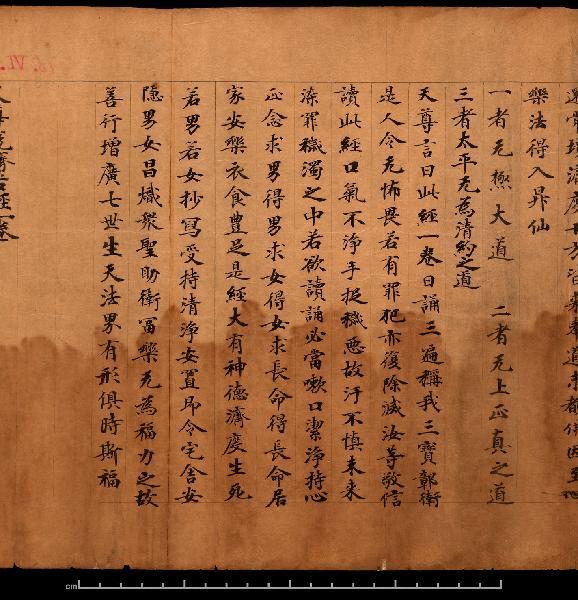 樂法得入昇仙
一者无極大道 二者无上正真之道
三者太平无為清約之道
天尊言曰此經一卷日誦三遍稱我三寳鄣衛
是人令无怖畏若有罪犯亦復除滅汝等敬信
讀此經口氣不淨手捉穢惡故汙不慎未来
染罪穢濁之中若欲讀誦必當嗽口潔淨持心
正念求男得男求女得女求長命得長命居
家安樂衣食豊足是經大有神德濟度生死
若男若女抄寫受持清淨安置即令宅舎安
隱男女昌熾衆聖助衛冨樂无為福力之故
善行增廣七世生天法界有形俱時斯福
経一卷
cm